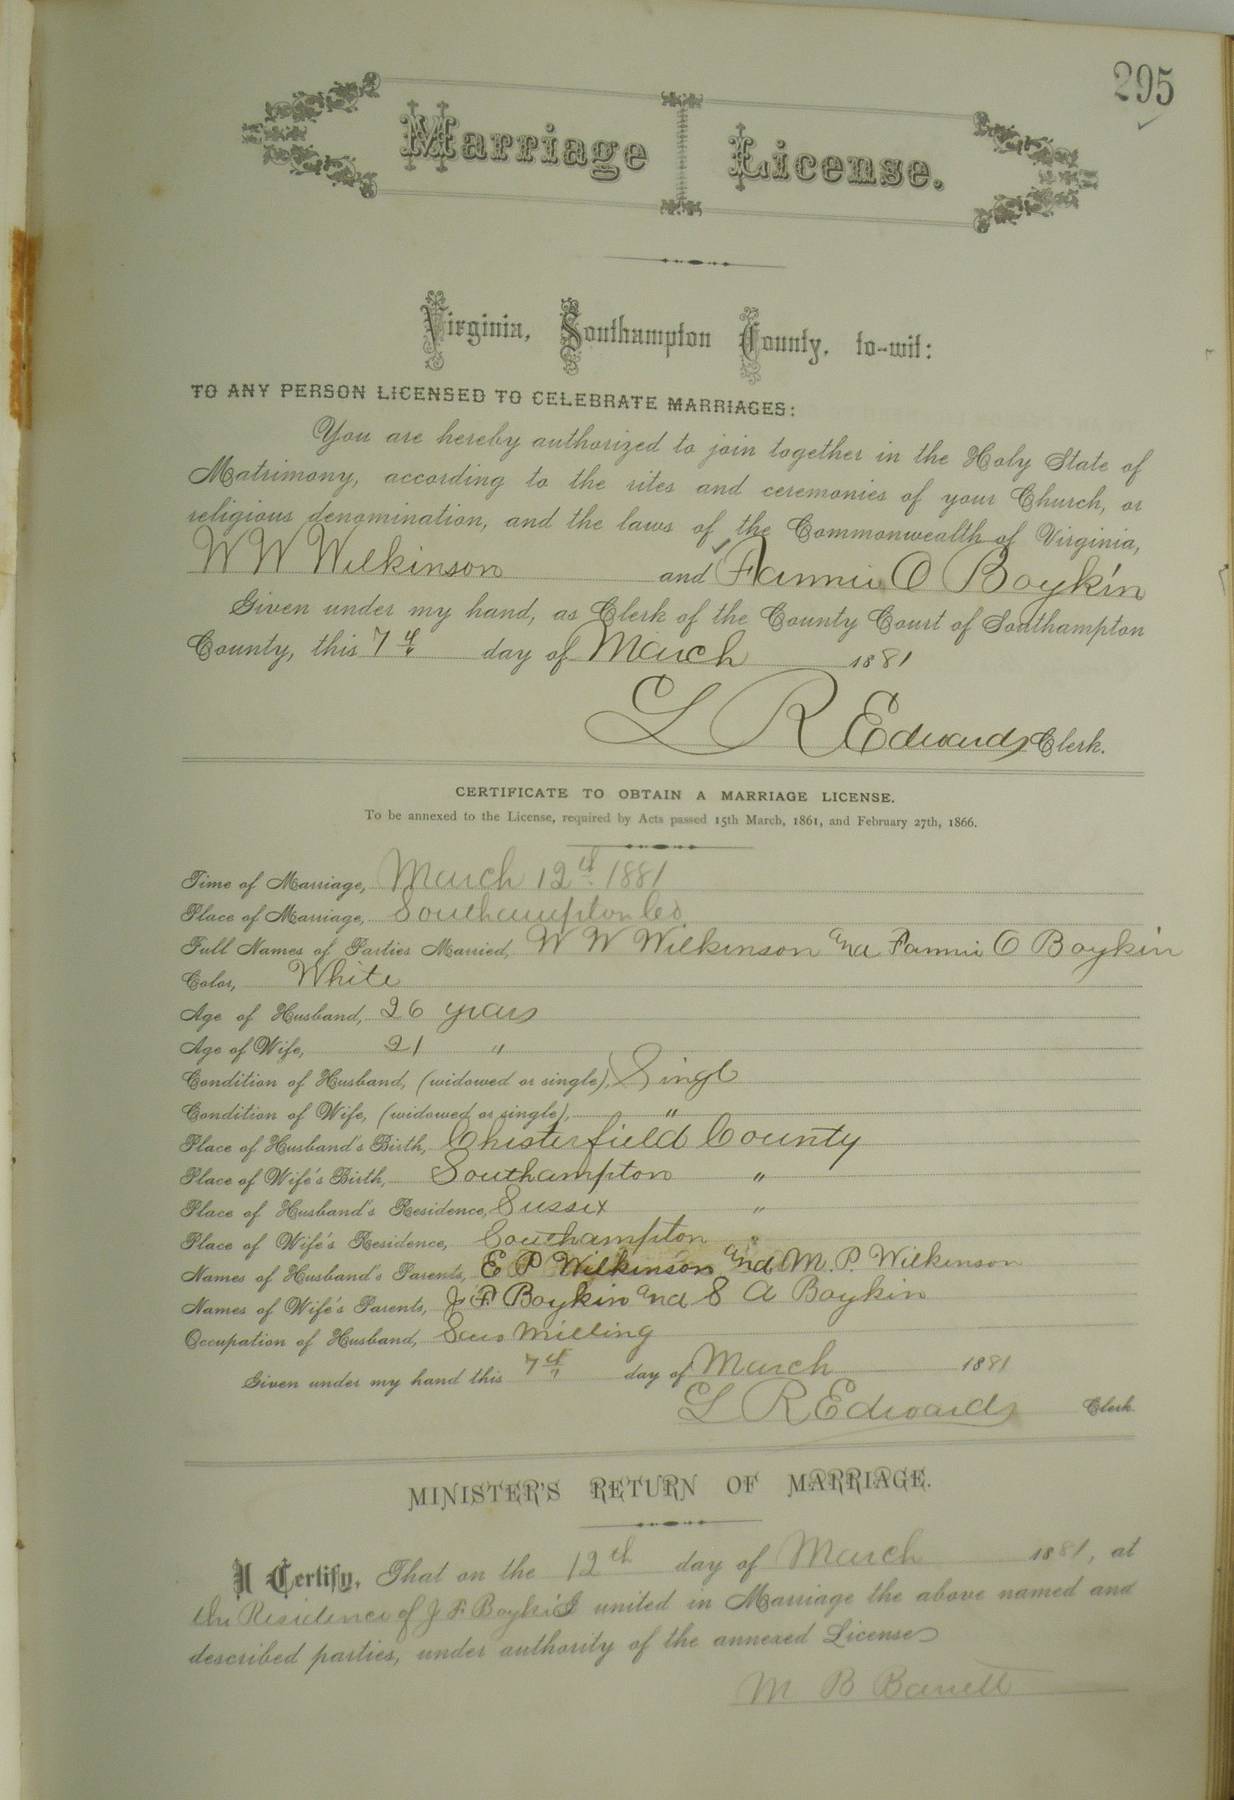 295
Marriage License.
Virginia, Southampton County, to-wit:
TO ANY PERSON LICENSED TO CELEBRATE MARRIAGES:
You are hereby authorized to join together in the Holy State of
Matrimony, according to the rites and ceremonies of your Church, or
religious denomination, and the laws of the Commonwealth of Virginia,
W W Wilkinson and Fannie O Boykin
Given under my hand, as Clerk of the County Court of Southampton
County, this 7th day of March 1881
L R Edwards Clerk.
CERTIFICATE TO OBTAIN A MARRIAGE LICENSE.
To be annexed to the License, required by Acts passed 15th March, 1861, and February 27th, 1866.
Time of Marriage, March 12th 1881
Place of Marriage, Southampton Co
Full Names of Parties Married, W W Wilkinson and Fannie O Boykin
Color, White
Age of Husband, 26 years
Age of Wife, 21 "
Condition of Husband, (widowed or single), Single
Condition of Wife, (widowed or single), "
Place of Husband's Birth, Chesterfield County
Place of Wife's Birth, Southampton "
Place of Husband's Residence, Sussex "
Place of Wife's Residence, Southampton "
Names of Husband's Parents, E P Wilkinson and M. P. Wilkinson
Names of Wife's Parents, J F Boykin and S A Boykin
Occupation of Husband, Saw Milling
Given under my hand this 7th day of March 1881
L R Edwards Clerk
MINISTER'S RETURN OF MARRIAGE.
I Certify, That on the 12th day of March 1881, at
the Residence of J F Boykin I united in Marriage the above named and
described parties, under authority of the annexed License
M B Barrett